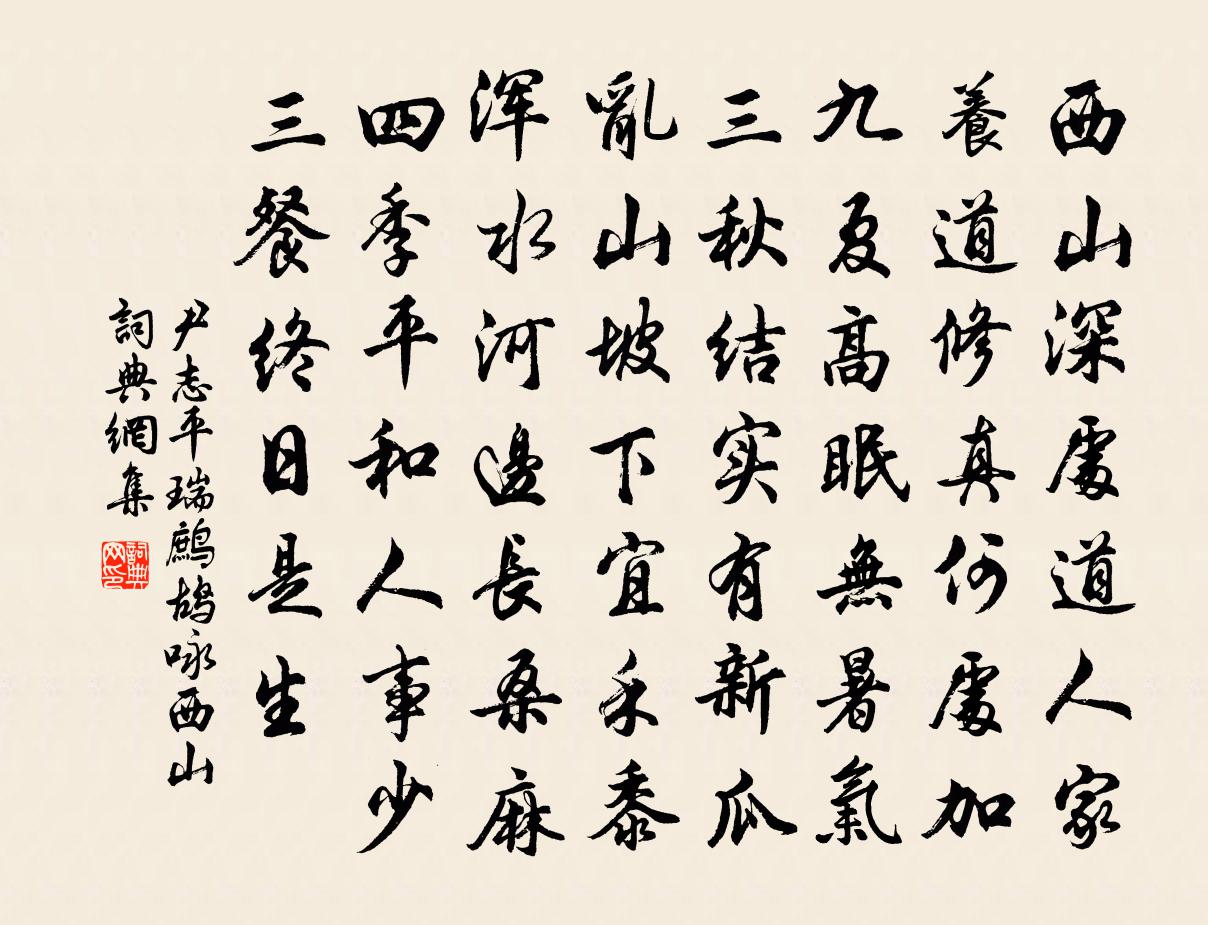 西山深處道人家
養道修真何處加
九夏高眠無暑氣
三秋结实有新瓜
亂山坡下宜禾黍
浑水河邊長桑麻
四季平和人事少
三餐终日是生
尹志平瑞鷓鴣咏西山
詞典網集
詞典网印